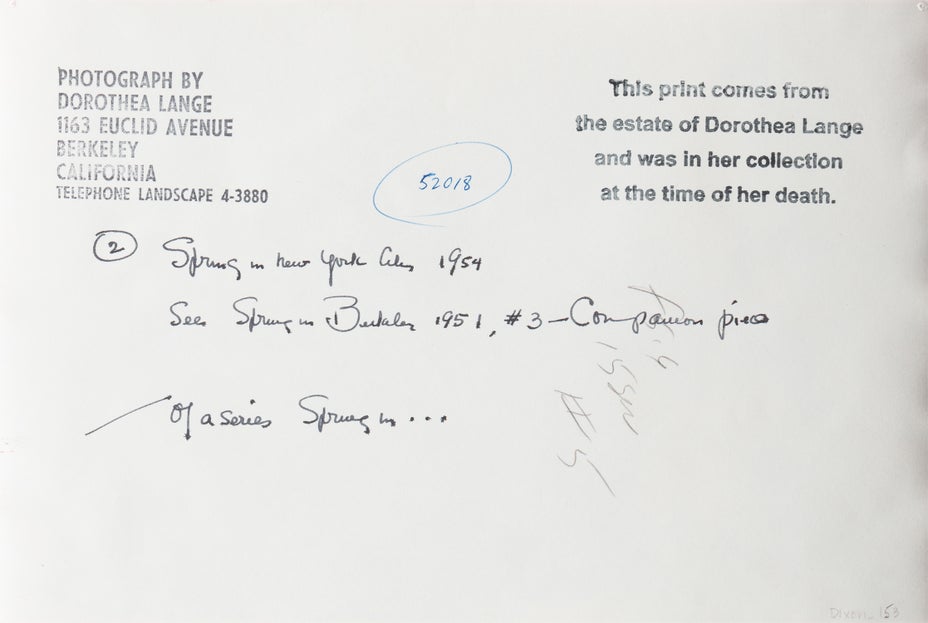 PHOTOGRAPH BY
DOROTHEA LANGE
1163 EUCLID AVENUE
BERKELEY
CALIFORNIA
TELEPHONE LANDSCAPE 4-3880
This print comes from
the estate of Dorothea Lange
and was in her collection
at the time of her death.
52018
2 Spring in New York City 1954
See Spring in Berkeley 1951, #3 - Companion piece
Of a series Spring in ...
#5
Dixon 153